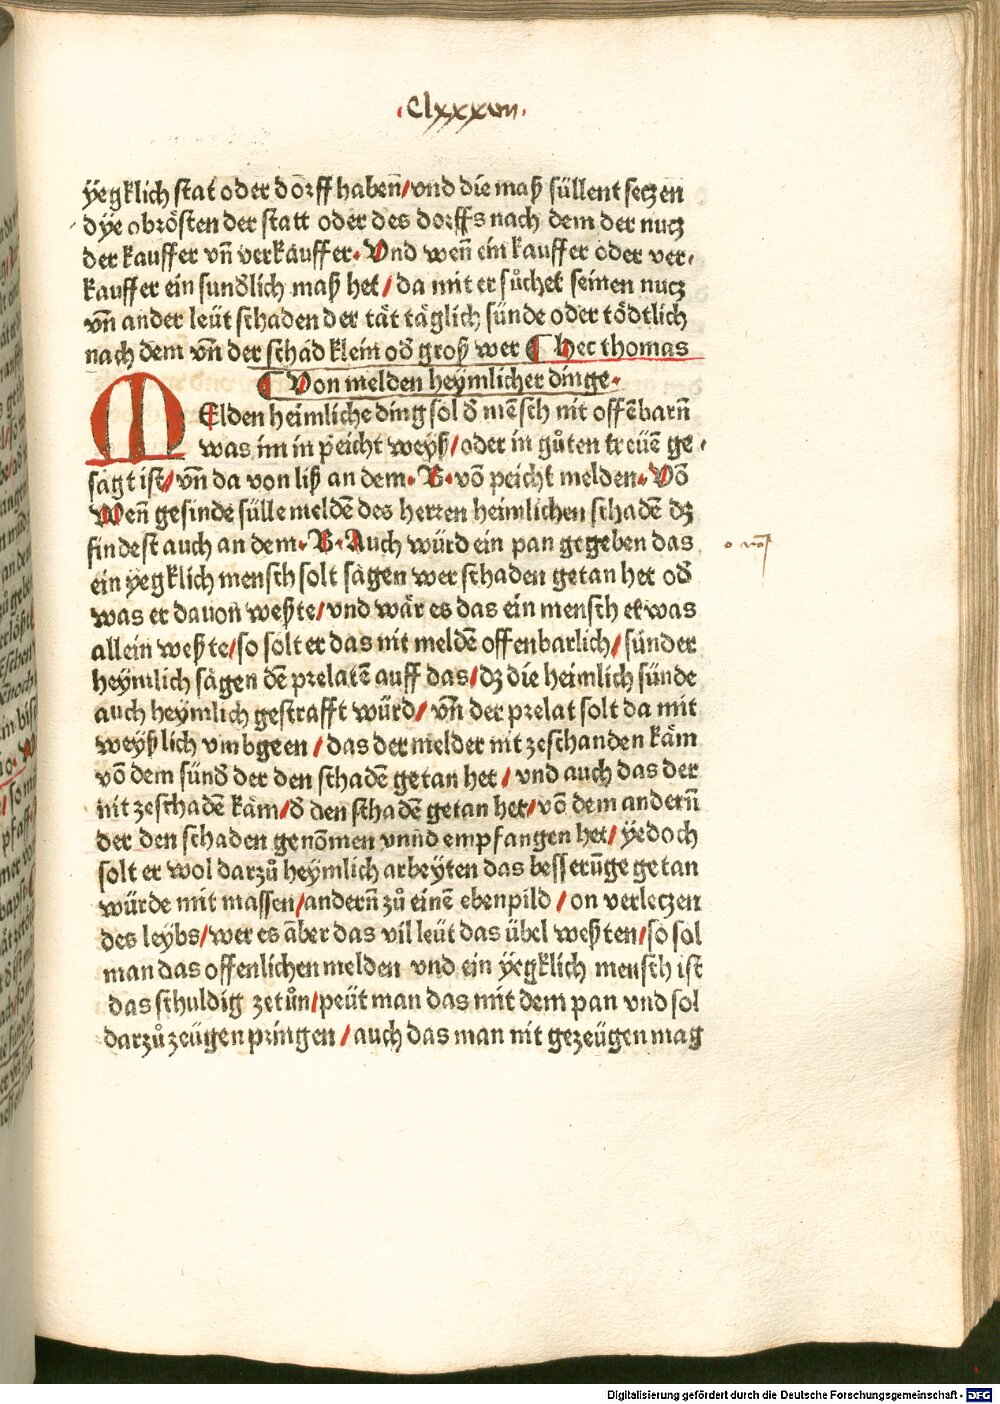 ·Clxxxvii·
ÿegklich stat oder dorff haben̄/vnd die maß süllent seczen
dÿe obrösten der statt oder des dorffs nach dem der nucz
der kauffer vn̄ verkauffer. Vnd wen̄ ein kauffer oder ver⸗
kauffer ein sunðlich maß het/da mit er sůchet seinen nucz
vn̄ ander leüt schaden der tät täglich sünde oder tödtlich
nach dem vn̄ der schad klein oð groß wer ¶ Hec thomas
¶ Von melden heÿmlicher dinge.
MElden heimliche ding sol ð mēsch nit offēbarn̄
was im in peicht weÿß/oder in gůten treüē ge⸗
sagt ist/vn̄ da von liß an dem. B. vō peicht melden. Vō
Wen̄ gesinde sülle meldē des herren heimlichen schadē dz
findest auch an dem. B. Auch würd ein pan gegeben das
ein ÿegklich mensch solt sagen wer schaden getan het oð
was er dauon weßte/vnd wär es das ein mensch etwas
allein weßte/so solt er das nit meldē offenbarlich/sünder
heÿmlich sagen dē prelatē auff das/dz die heimlich sünde
auch heÿmlich gestrafft würd/vn̄ der prelat solt da mit
weÿßlich vmbgeen/das der melder nit zeschanden käm
vō dem sünð der den schadē getan het/vnd auch das der
nit zeschadē käm/ð den schadē getan het/vō dem andern̄
der den schaden genōmen vnnd empfangen het/ÿedoch
solt er wol darzů heÿmlich arbeÿten das besserūge getan
würde mit massen/andern̄ zů einē ebenpild/on verleczen
des leÿbs/wer es aber das vil leüt das übel weßten/so sol
man das offenlichen melden vnd ein ÿegklich mensch ist
das schuldig zetůn/peüt man das mit dem pan vnd sol
darzů zeügen pringen/auch das man nit gezeügen mag
Digitalisierung gefördert durch die Deutsche Forschungsgemeinschaft - DFG